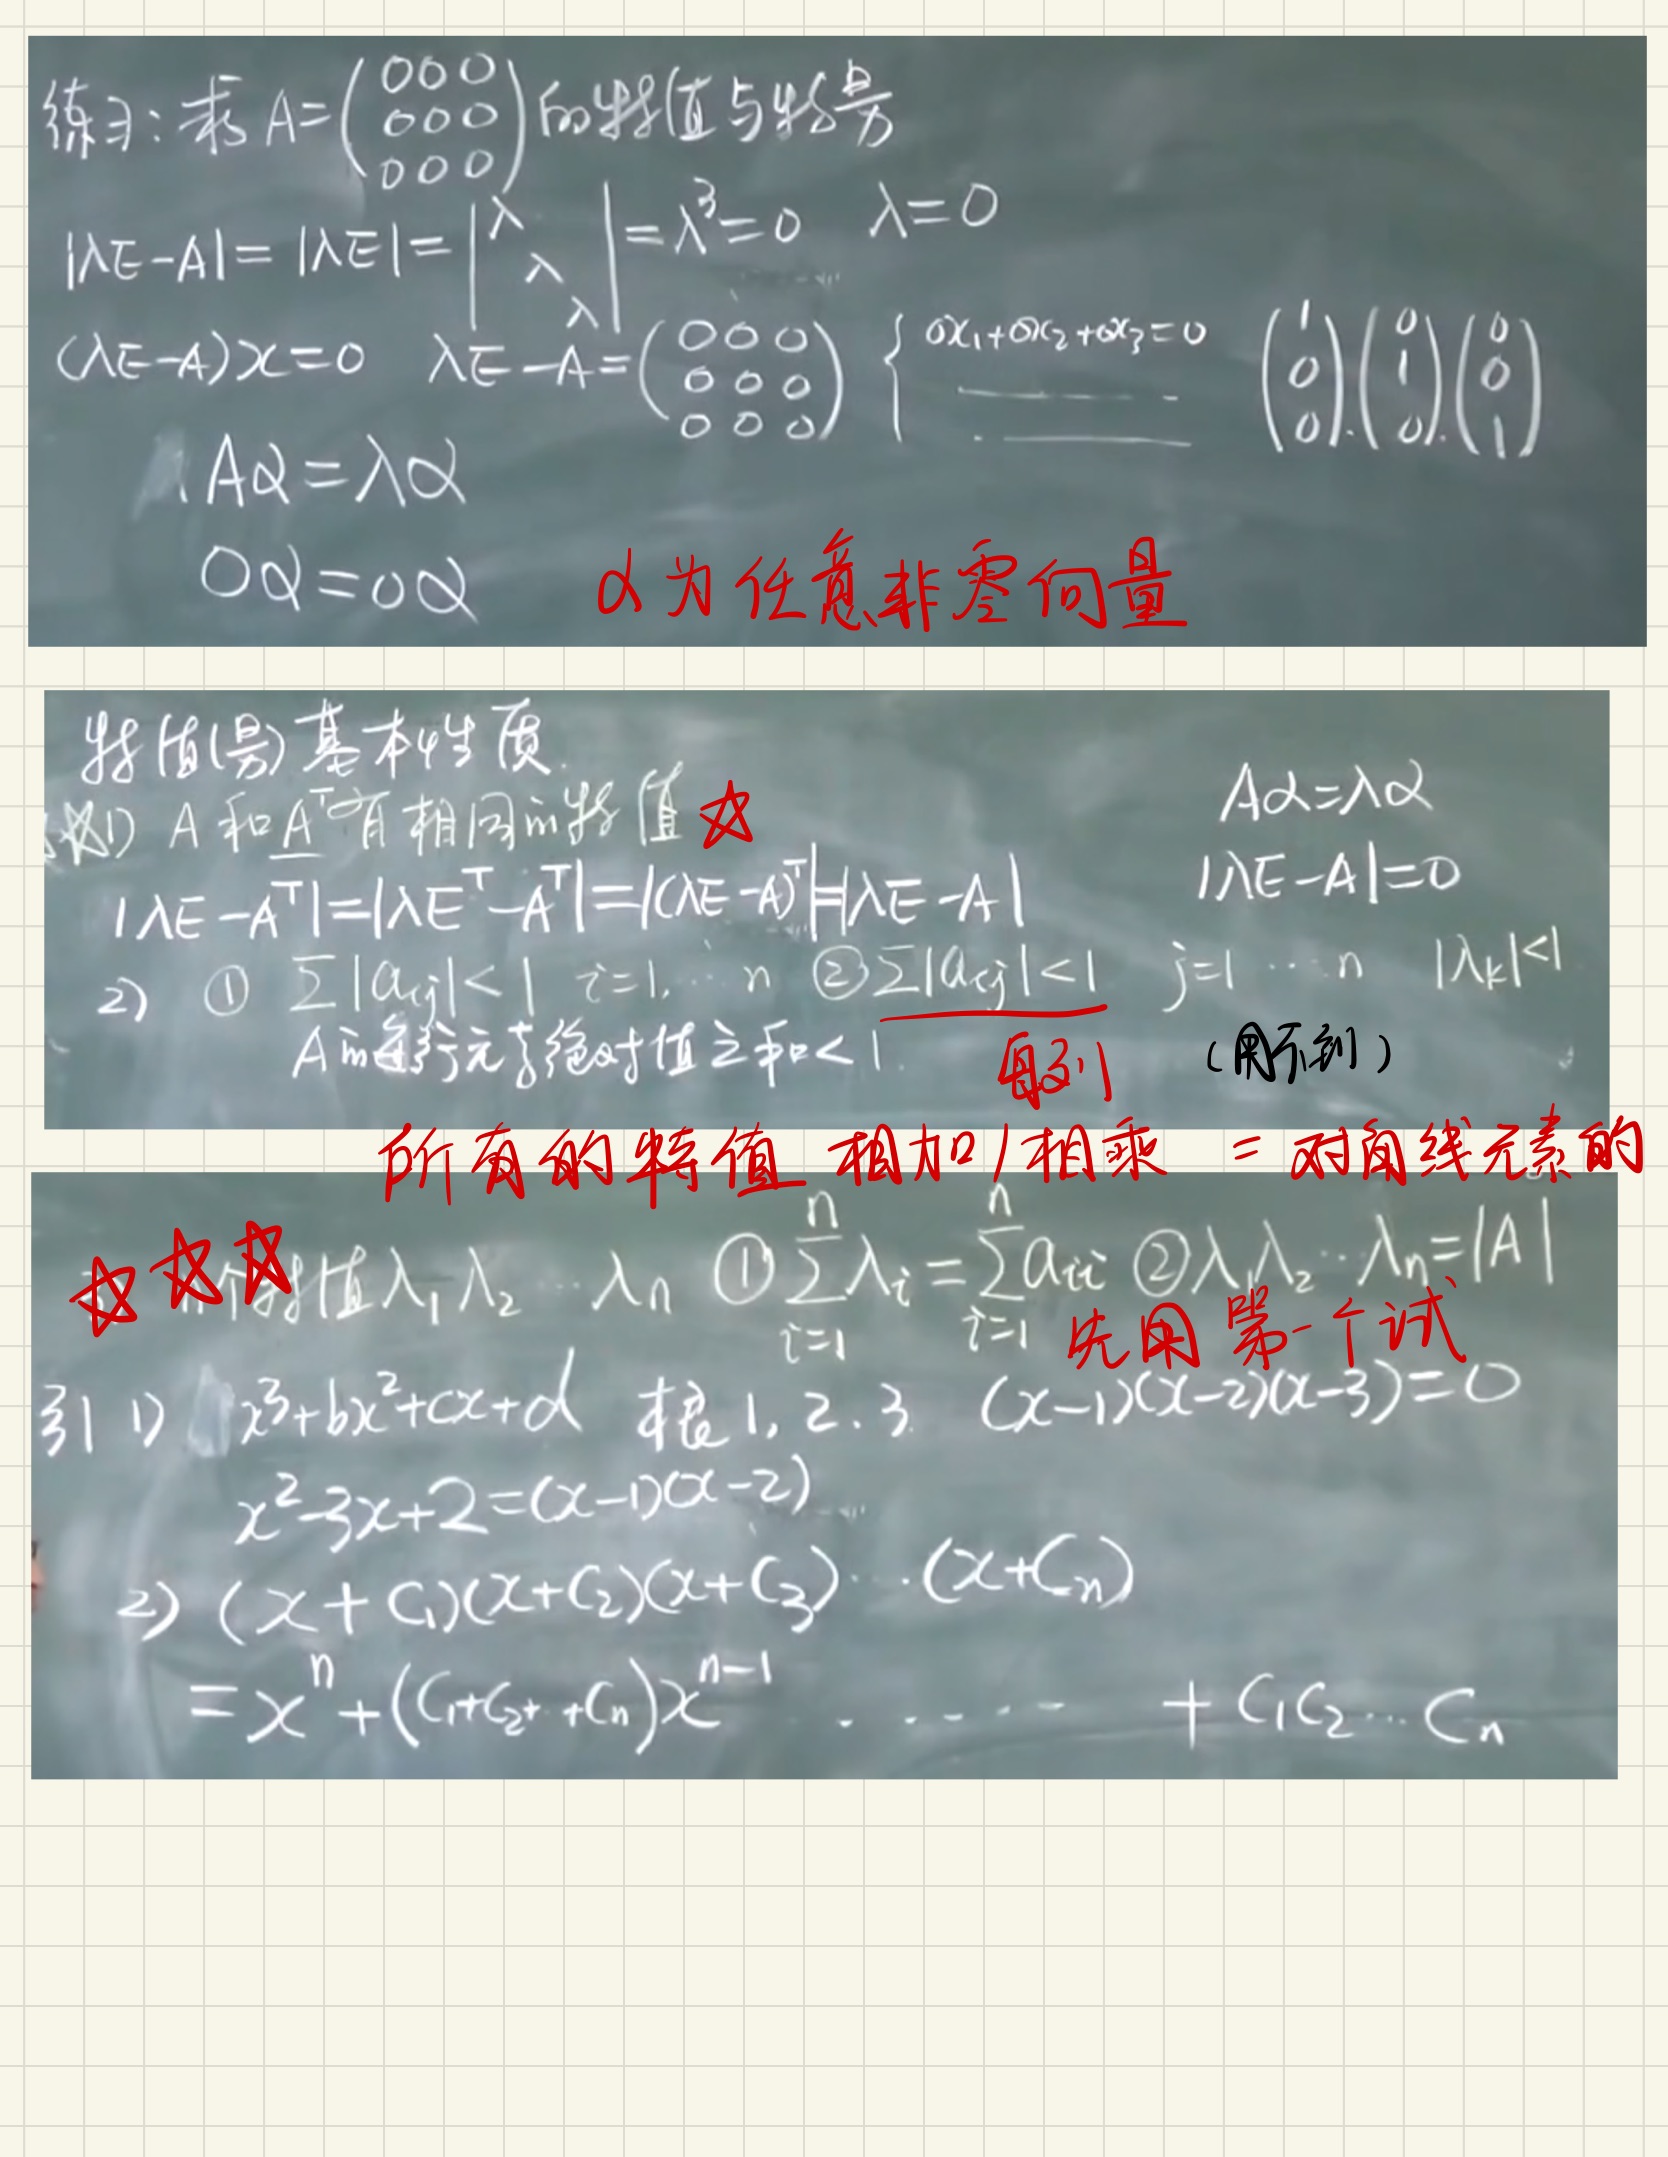 练习：求 A=(000 000 000) 的特值与特号
|λE-A|=|λE|=|λ λ λ|=λ³=0 λ=0
(λE-A)x=0 λE-A=(000 000 000) { 0x₁+0x₂+0x₃=0 (1 0 0).(0 1 0).(0 0 1)
Aα=λα
Oα=0α
α为任意非零向量
特值(号)基本性质.
1) A和Aᵀ有相同的特值
Aα=λα
|λE-Aᵀ|=|λEᵀ-Aᵀ|=|(λE-A)ᵀ|=|λE-A|
|λE-A|=0
2) ① ∑|aij|<1 i=1,…n ②∑|aij|<1 j=1…n |λk|<1
A的每行元素绝对值之和<1. 每列 (用不到)
所有的特值 相加/相乘 = 对角线元素的
n个特值λ₁λ₂…λn ①∑ⁿᵢ₌₁λi=∑ⁿᵢ₌₁aii ②λ₁λ₂…λn=|A|
先用第一个试
引 1) x³+bx²+cx+d 根1,2.3. (x-1)(x-2)(x-3)=0
x²-3x+2=(x-1)(x-2)
2) (x+C₁)(x+C₂)(x+C₃)…(x+Cn)
=xⁿ+(C₁+C₂+…+Cn)xⁿ⁻¹ …… +C₁C₂…Cn